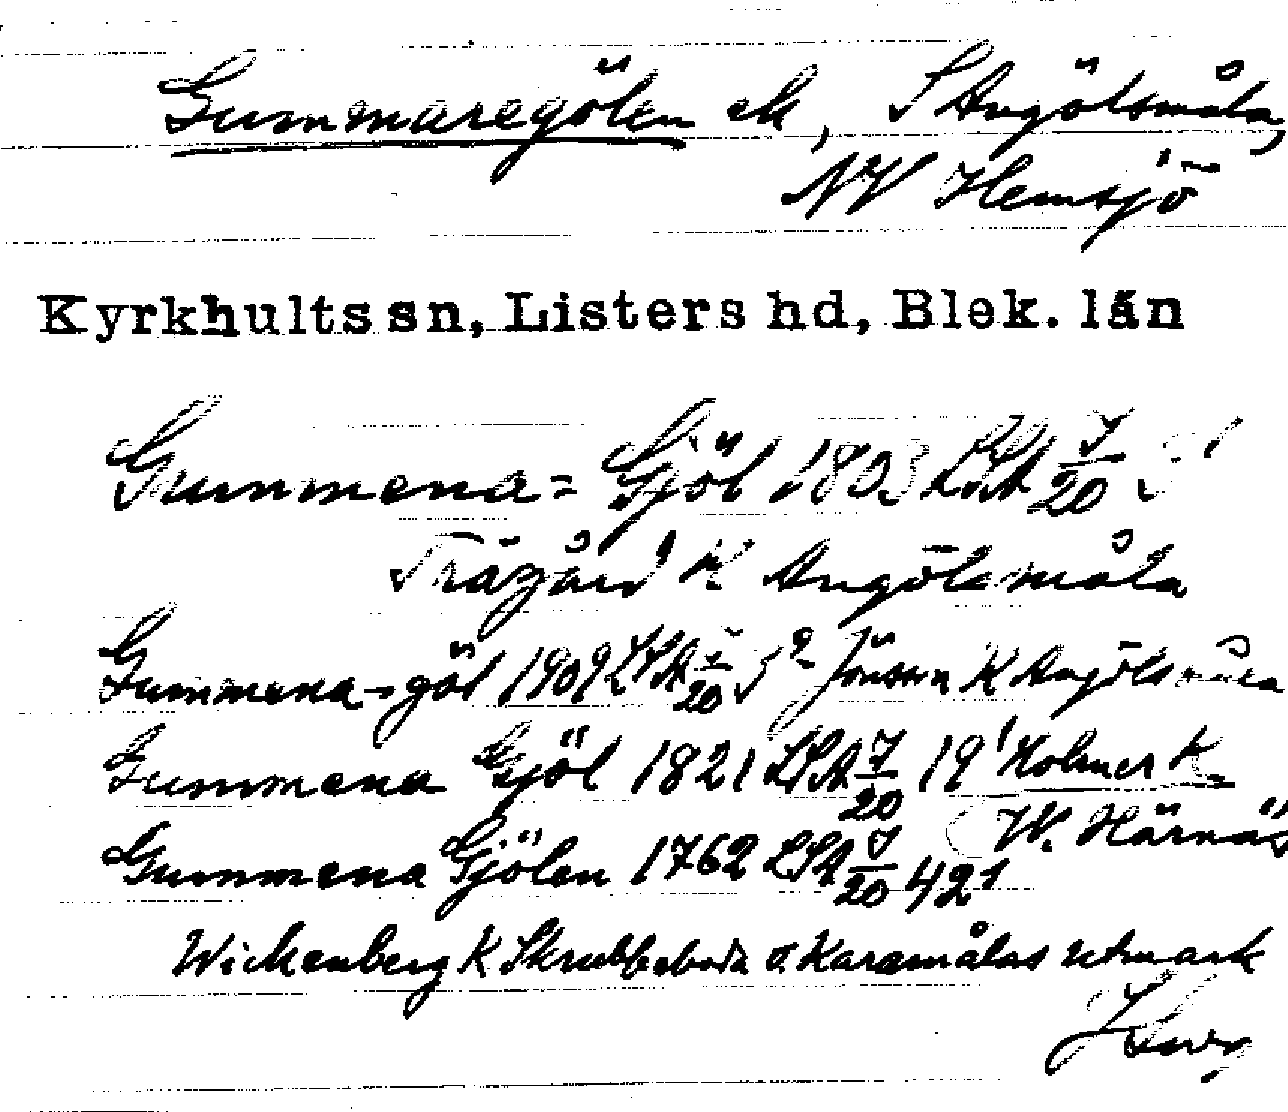 Gummaregölen ek, S Angölsmåla,
NV Hemsjö
Kyrkhults sn, Listers hd, Blek. län
Gummena = Gjöl 1803 LSA J/20
Trägård K Angölsmåla
Gummena-göl 1909 LSA J/20 5² Jönsson K Angölsmåla
Gummena Gjöl 1821 LSA J/20 19¹ Holmer K
W. Härnäs
Gummena Gjölen 1762 LSA J/20 42¹
Wickenberg K Skrubbeboda o. Karamålas utmark